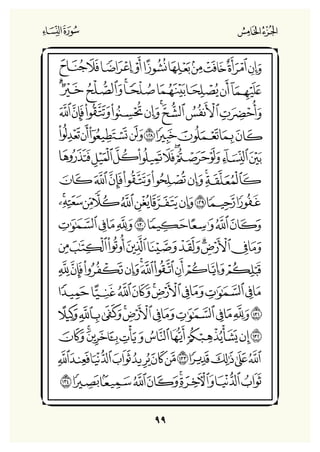 الجُزْءُ الخَامِسُ سُورَةُ النِّسَاءِ
وَإِنِ ٱمْرَأَةٌ خَافَتْ مِنۢ بَعْلِهَا نُشُوزًا أَوْ إِعْرَاضًا فَلَا جُنَاحَ
عَلَيْهِمَآ أَن يُصْلِحَا بَيْنَهُمَا صُلْحًا ۚ وَٱلصُّلْحُ خَيْرٌ ۗ
وَأُحْضِرَتِ ٱلْأَنفُسُ ٱلشُّحَّ ۚ وَإِن تُحْسِنُوا۟ وَتَتَّقُوا۟ فَإِنَّ ٱللَّهَ
كَانَ بِمَا تَعْمَلُونَ خَبِيرًا ١٢٨ وَلَن تَسْتَطِيعُوٓا۟ أَن تَعْدِلُوا۟
بَيْنَ ٱلنِّسَآءِ وَلَوْ حَرَصْتُمْ ۖ فَلَا تَمِيلُوا۟ كُلَّ ٱلْمَيْلِ فَتَذَرُوهَا
كَٱلْمُعَلَّقَةِ ۚ وَإِن تُصْلِحُوا۟ وَتَتَّقُوا۟ فَإِنَّ ٱللَّهَ كَانَ
غَفُورًا رَّحِيمًا ١٢٩ وَإِن يَتَفَرَّقَا يُغْنِ ٱللَّهُ كُلًّا مِّن سَعَتِهِۦ ۚ
وَكَانَ ٱللَّهُ وَٰسِعًا حَكِيمًا ١٣٠ وَلِلَّهِ مَا فِى ٱلسَّمَٰوَٰتِ
وَمَا فِى ٱلْأَرْضِ ۗ وَلَقَدْ وَصَّيْنَا ٱلَّذِينَ أُوتُوا۟ ٱلْكِتَٰبَ مِن
قَبْلِكُمْ وَإِيَّاكُمْ أَنِ ٱتَّقُوا۟ ٱللَّهَ ۚ وَإِن تَكْفُرُوا۟ فَإِنَّ لِلَّهِ
مَا فِى ٱلسَّمَٰوَٰتِ وَمَا فِى ٱلْأَرْضِ ۚ وَكَانَ ٱللَّهُ غَنِيًّا حَمِيدًا
١٣١ وَلِلَّهِ مَا فِى ٱلسَّمَٰوَٰتِ وَمَا فِى ٱلْأَرْضِ ۚ وَكَفَىٰ بِٱللَّهِ وَكِيلًا
١٣٢ إِن يَشَأْ يُذْهِبْكُمْ أَيُّهَا ٱلنَّاسُ وَيَأْتِ بِـَٔاخَرِينَ ۚ وَكَانَ
ٱللَّهُ عَلَىٰ ذَٰلِكَ قَدِيرًا ١٣٣ مَّن كَانَ يُرِيدُ ثَوَابَ ٱلدُّنْيَا فَعِندَ ٱللَّهِ
ثَوَابُ ٱلدُّنْيَا وَٱلْءَاخِرَةِ ۚ وَكَانَ ٱللَّهُ سَمِيعًۢا بَصِيرًا ١٣٤
٩٩